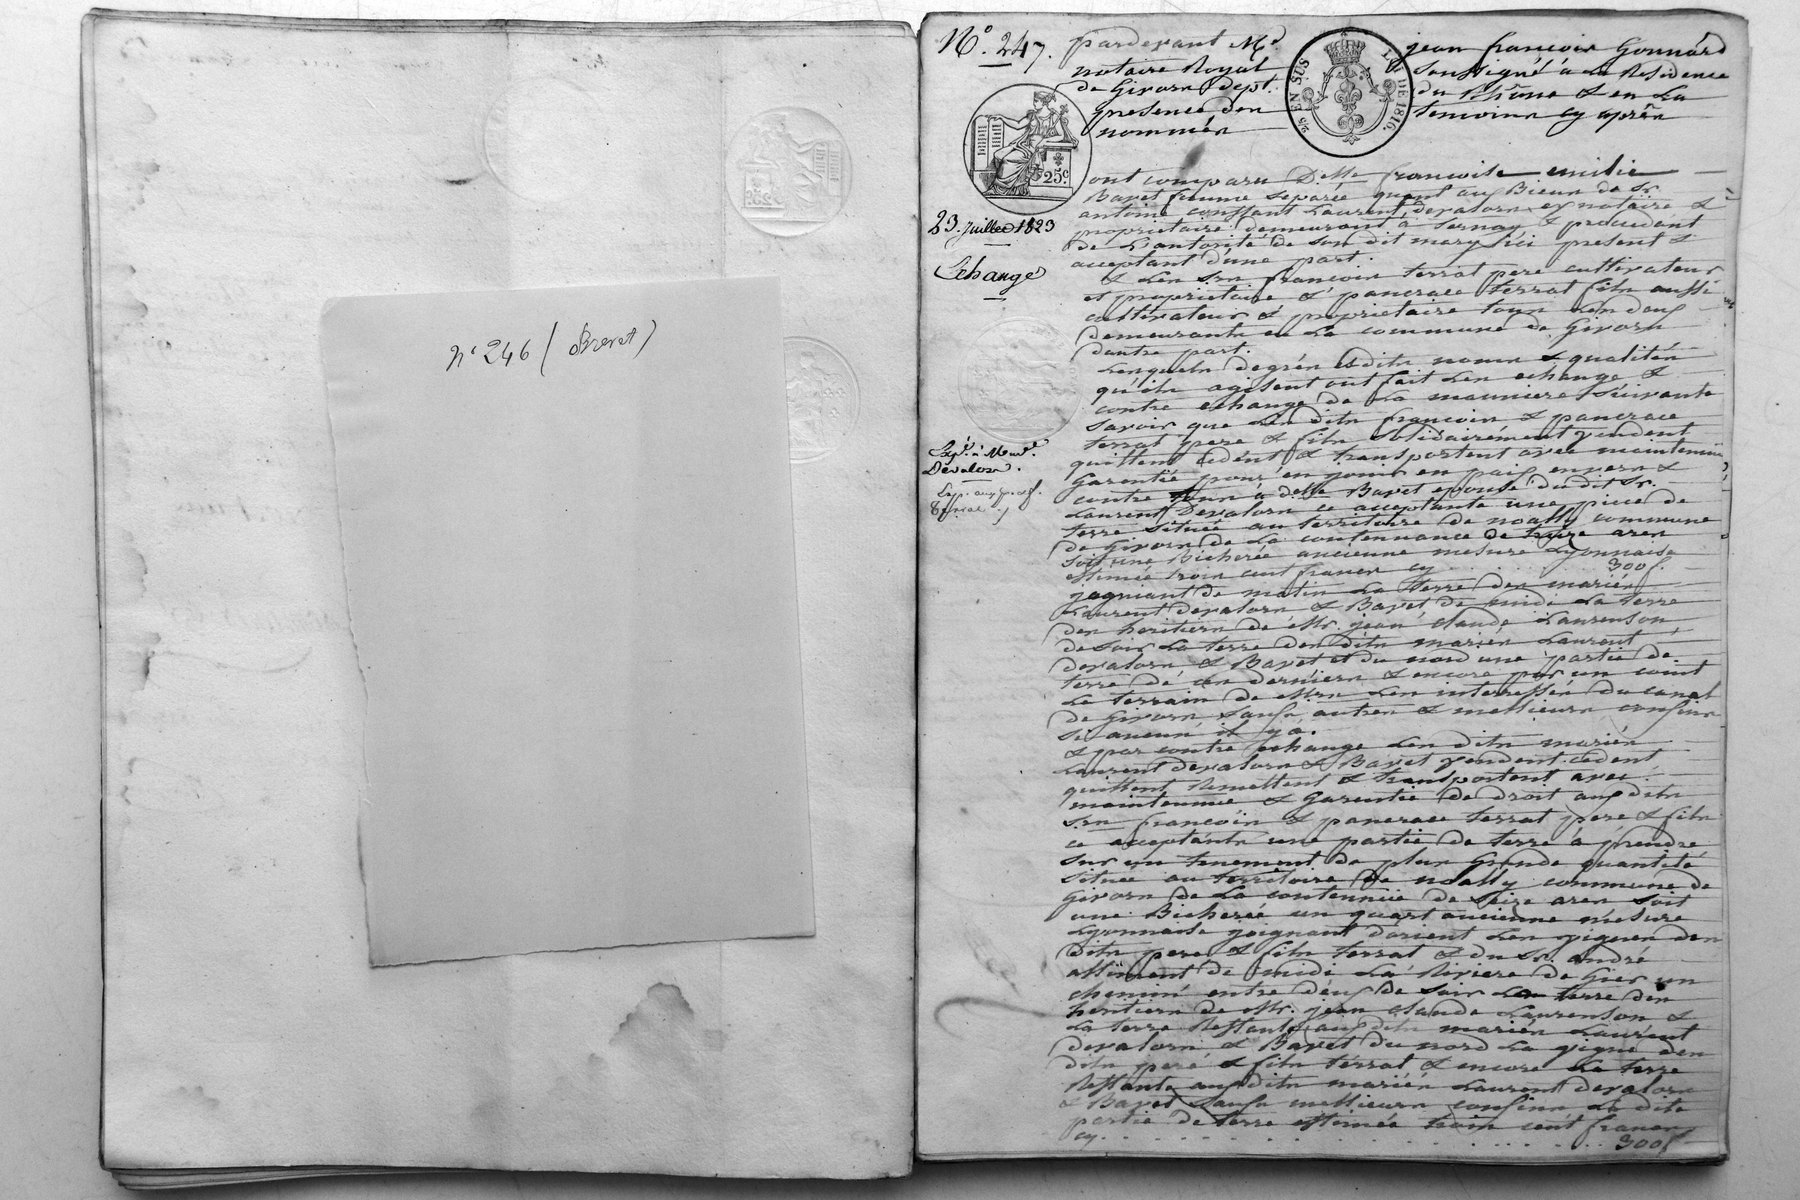 N° 246 (Brevet)
N°. 247.
23. juillet 1823
Echange
Exp. à Mad.e
Devalors.
Exp. aux pere & f.
Terrat
pardevant Me. jean francois Gonnard
notaire Royal soussigné à la Residence
de Givors Dept. du Rhône & en La
presence des temoins cy après
nommés
2/5 EN SUS
LOI DE 1816.
25c
ont comparu Delle francoise emilie
Bavet femme separée quant aux Biens de Sr.
antoine constant Laurent devalors ex notaire &
proprietaire demeurant à ternay & procedant
de L'autorité de son dit mary ici present &
aceptant d'une part.
& Les Srs francois terrat pere cultivateur
et proprietaire & pancrace terrat fils aussi
cultivateur & proprietaire tous Les deux
demeurants en La commune de Givors
dautre part.
Lesquels degrés es dits noms & qualités
qu'ils agisent ont fait Les echange &
contre echange de La manniere Suivante
Savoir que Les dits francois & pancrace
terrat pere & fils solidairement vendent
quittent cedent & transportent avec maintenue
Garentie pour en jouir en paix envers &
contre tous à delle Bavet epouse du dit Sr.
Laurent Devalors ce aceptante une piece de
terre située au territoire de noally commune
de Givors de La contenance de treize ares
soit une Bicherée ancienne mesure Lyonnaise
estimée trois cent francs cy . . . . . . . 300f.
joignant de matin La terre des mariés
Laurent devalors & Bavet de midi La terre
des heritiers de Mr. jean claude Laurenson
de soir La terre des dits mariés Laurent
devalors & Bavet et du nord une partie de
terre de ces derniers & encore par un coint
Le terrain de Mrs Les interressés du canal
de Givors sauf autres & meilleurs confins
si aucun il y a.
& par contre echange Les dits mariés
Laurent devalors & Bavet vendent cedent
quittent Remettent & transportent avec
maintenue & Garentie de droit aux dits
Srs francois & pancrace terrat pere & fils
ce aceptants une partie de terre à prendre
sur un tenement de plus Grande quantité
située au territoire de noally commune de
Givors de La contennue de seize ares soit
une Bicherée un quart ancienne mesure
Lyonnaise joignant d'orient Les vignes des
dits pere & fils terrat & du Sr. andré
alliment de midi La Riviere de Gier un
chemin entre deux de soir Les terre des
heritiers de Mr. jean claude Laurenson &
La terre Restante aux dits mariés Laurent
devalors & Bavet du nord La vigne des
dits pere & fils terrat & encore La terre
Restante aux dits mariés Laurent devalors
& Bavet sauf meilleurs confins La dite
partie de terre estimée trois cent francs
cy . . . . . . . . . . . . . . . . 300f